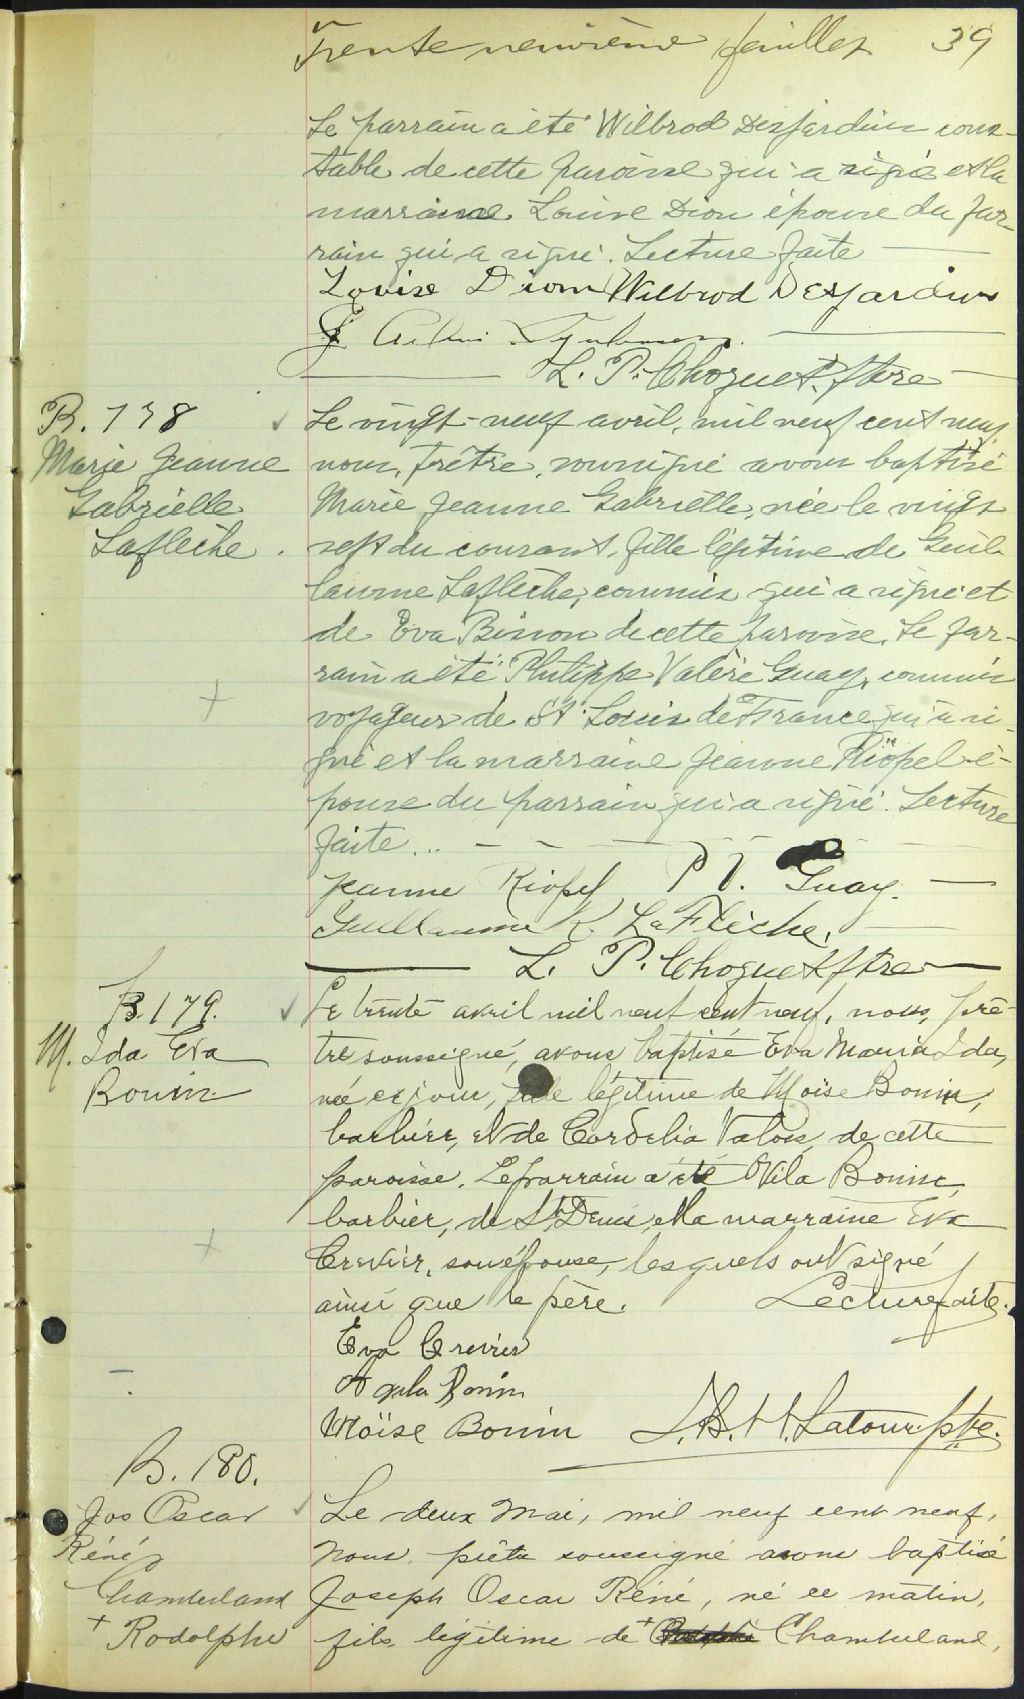 Trente neuvième feuillet 39
Le parrain a été Wilbrod Desjardins cons-
table de cette paroisse qui a signé et la
marraine Louise Dion épouse du par-
rain qui a signé. Lecture faite
Louise Dion Wilbrod Desjardins
L. P. Choquet, ptre
B. 178
Marie Jeanne
Gabrielle
Laflèche.
Le vingt-neuf avril, mil neuf cent neuf
nous, prêtre, soussigné avons baptisé
Marie Jeanne Gabrielle, née le vingt
sept du courant, fille légitime de Guil-
laume Laflèche, commis qui a signé et
de Eva Bisson de cette paroisse. Le par-
rain a été Philippe Valère Guay, commis
voyageur de St Louis de France qui a si-
gné et la marraine Jeanne Riopel é-
pouse du parrain qui a signé. Lecture
faite...
Jeanne Riopel P V. Guay.
Guillaume K. LaFlèche.
L. P. Choquet ptre
B. 179.
M. Ida Eva
Bonin
Le trente avril mil neuf cent neuf, nous, prê-
tre soussigné, avons baptisé Eva Maria Ida,
née ce jour, fille légitime de Moïse Bonin,
barbier, et de Cordelia Valois, de cette
paroisse. Le parrain a été Bonin,
barbier, de St Denis, et la marraine Eva
Crevier, son épouse, lesquels ont signé
ainsi que le père. Lecture faite.
Eva Crevier
Bonin
Moïse Bonin J. B. H. Latour ptre.
B. 180.
Jos Oscar
Réné
Chamberland
+ Rodolphe
Le deux Mai, mil neuf cent neuf,
nous, prêtre soussigné avons baptisé
Joseph Oscar Réné, né ce matin,
fils légitime de + Chamberland,